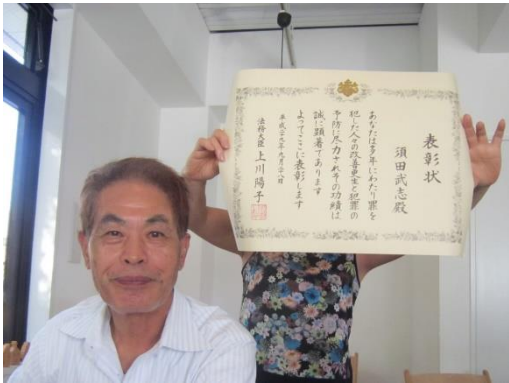 表彰状
須田武志殿
あなたは多年にわたり罪を
犯した人々の改善更生と犯罪の
予防に尽力されその功績は
誠に顕著であります
よってここに表彰します
平成二十九年九月二十八日
法務大臣 上川陽子